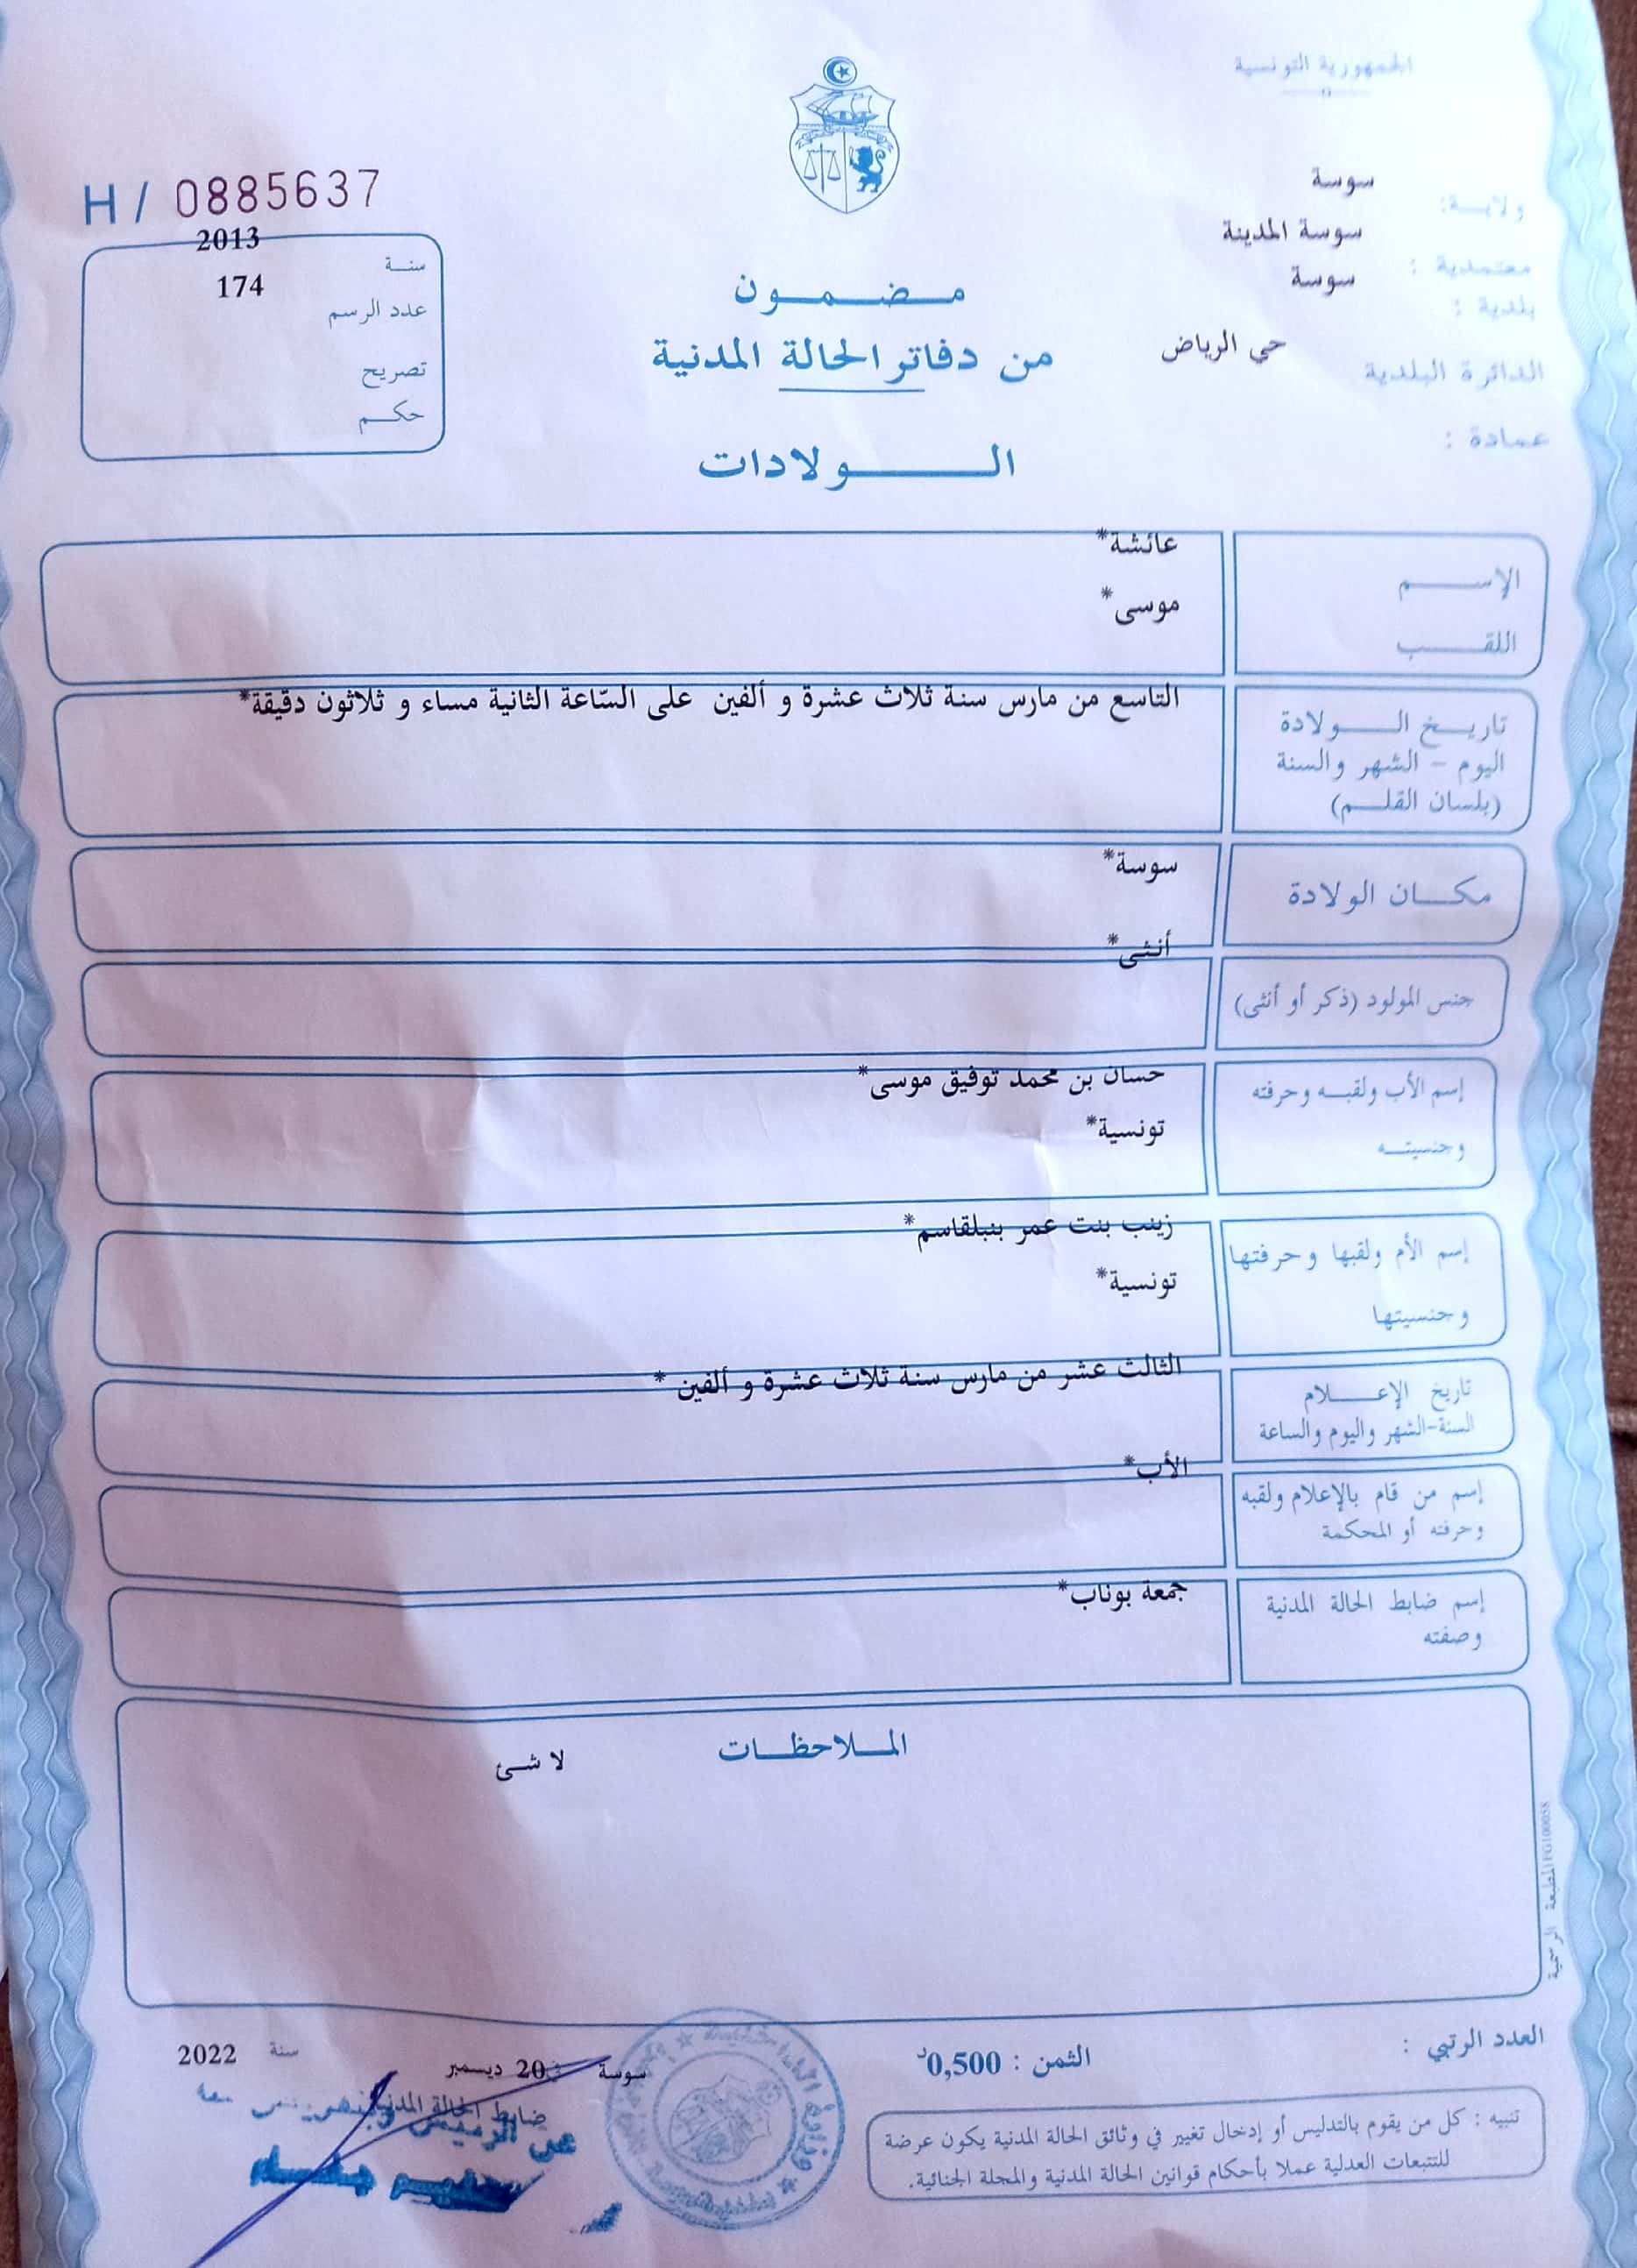 الجمهورية التونسية
ولايـة: سوسة
معتمدية : سوسة المدينة
بلدية : سوسة
الدائرة البلدية حي الرياض
عمادة :
H / 0885637
سنـة 2013
عدد الرسم 174
تصريح
حكـم
مـضـمـون
من دفاتر الحالة المدنية
الـولادات
الإسـم عائشة*
اللقـب موسى*
تاريـخ الـولادة
اليوم - الشهر والسنة
(بلسان القلـم)
التاسع من مارس سنة ثلاث عشرة و ألفين على السّاعة الثانية مساء و ثلاثون دقيقة*
مكـان الولادة سوسة*
جنس المولود (ذكر أو أنثى) أنثى*
إسم الأب ولقبـه وحرفته حسان بن محمد توفيق موسى*
وجنسيتـه تونسية*
إسم الأم ولقبها وحرفتها زينب بنت عمر بنبلقاسم*
وجنسيتها تونسية*
تاريخ الإعـلام
السنة-الشهر واليوم والساعة
الثالث عشر من مارس سنة ثلاث عشرة و ألفين *
إسم من قام بالإعلام ولقبه
وحرفته أو المحكمة
الأب*
إسم ضابط الحالة المدنية
وصفته
جمعة بوناب*
المـلاحظـات
لا شئ
المطبعة الرسمية FG100058
العدد الرتبي :
الثمن : 0,500د
سوسة 20 ديسمبر سنة 2022
ضابط الحالة المدنية
عن الرئيس
تنبيه : كل من يقوم بالتدليس أو إدخال تغيير في وثائق الحالة المدنية يكون عرضة
للتتبعات العدلية عملا بأحكام قوانين الحالة المدنية والمجلة الجنائية.